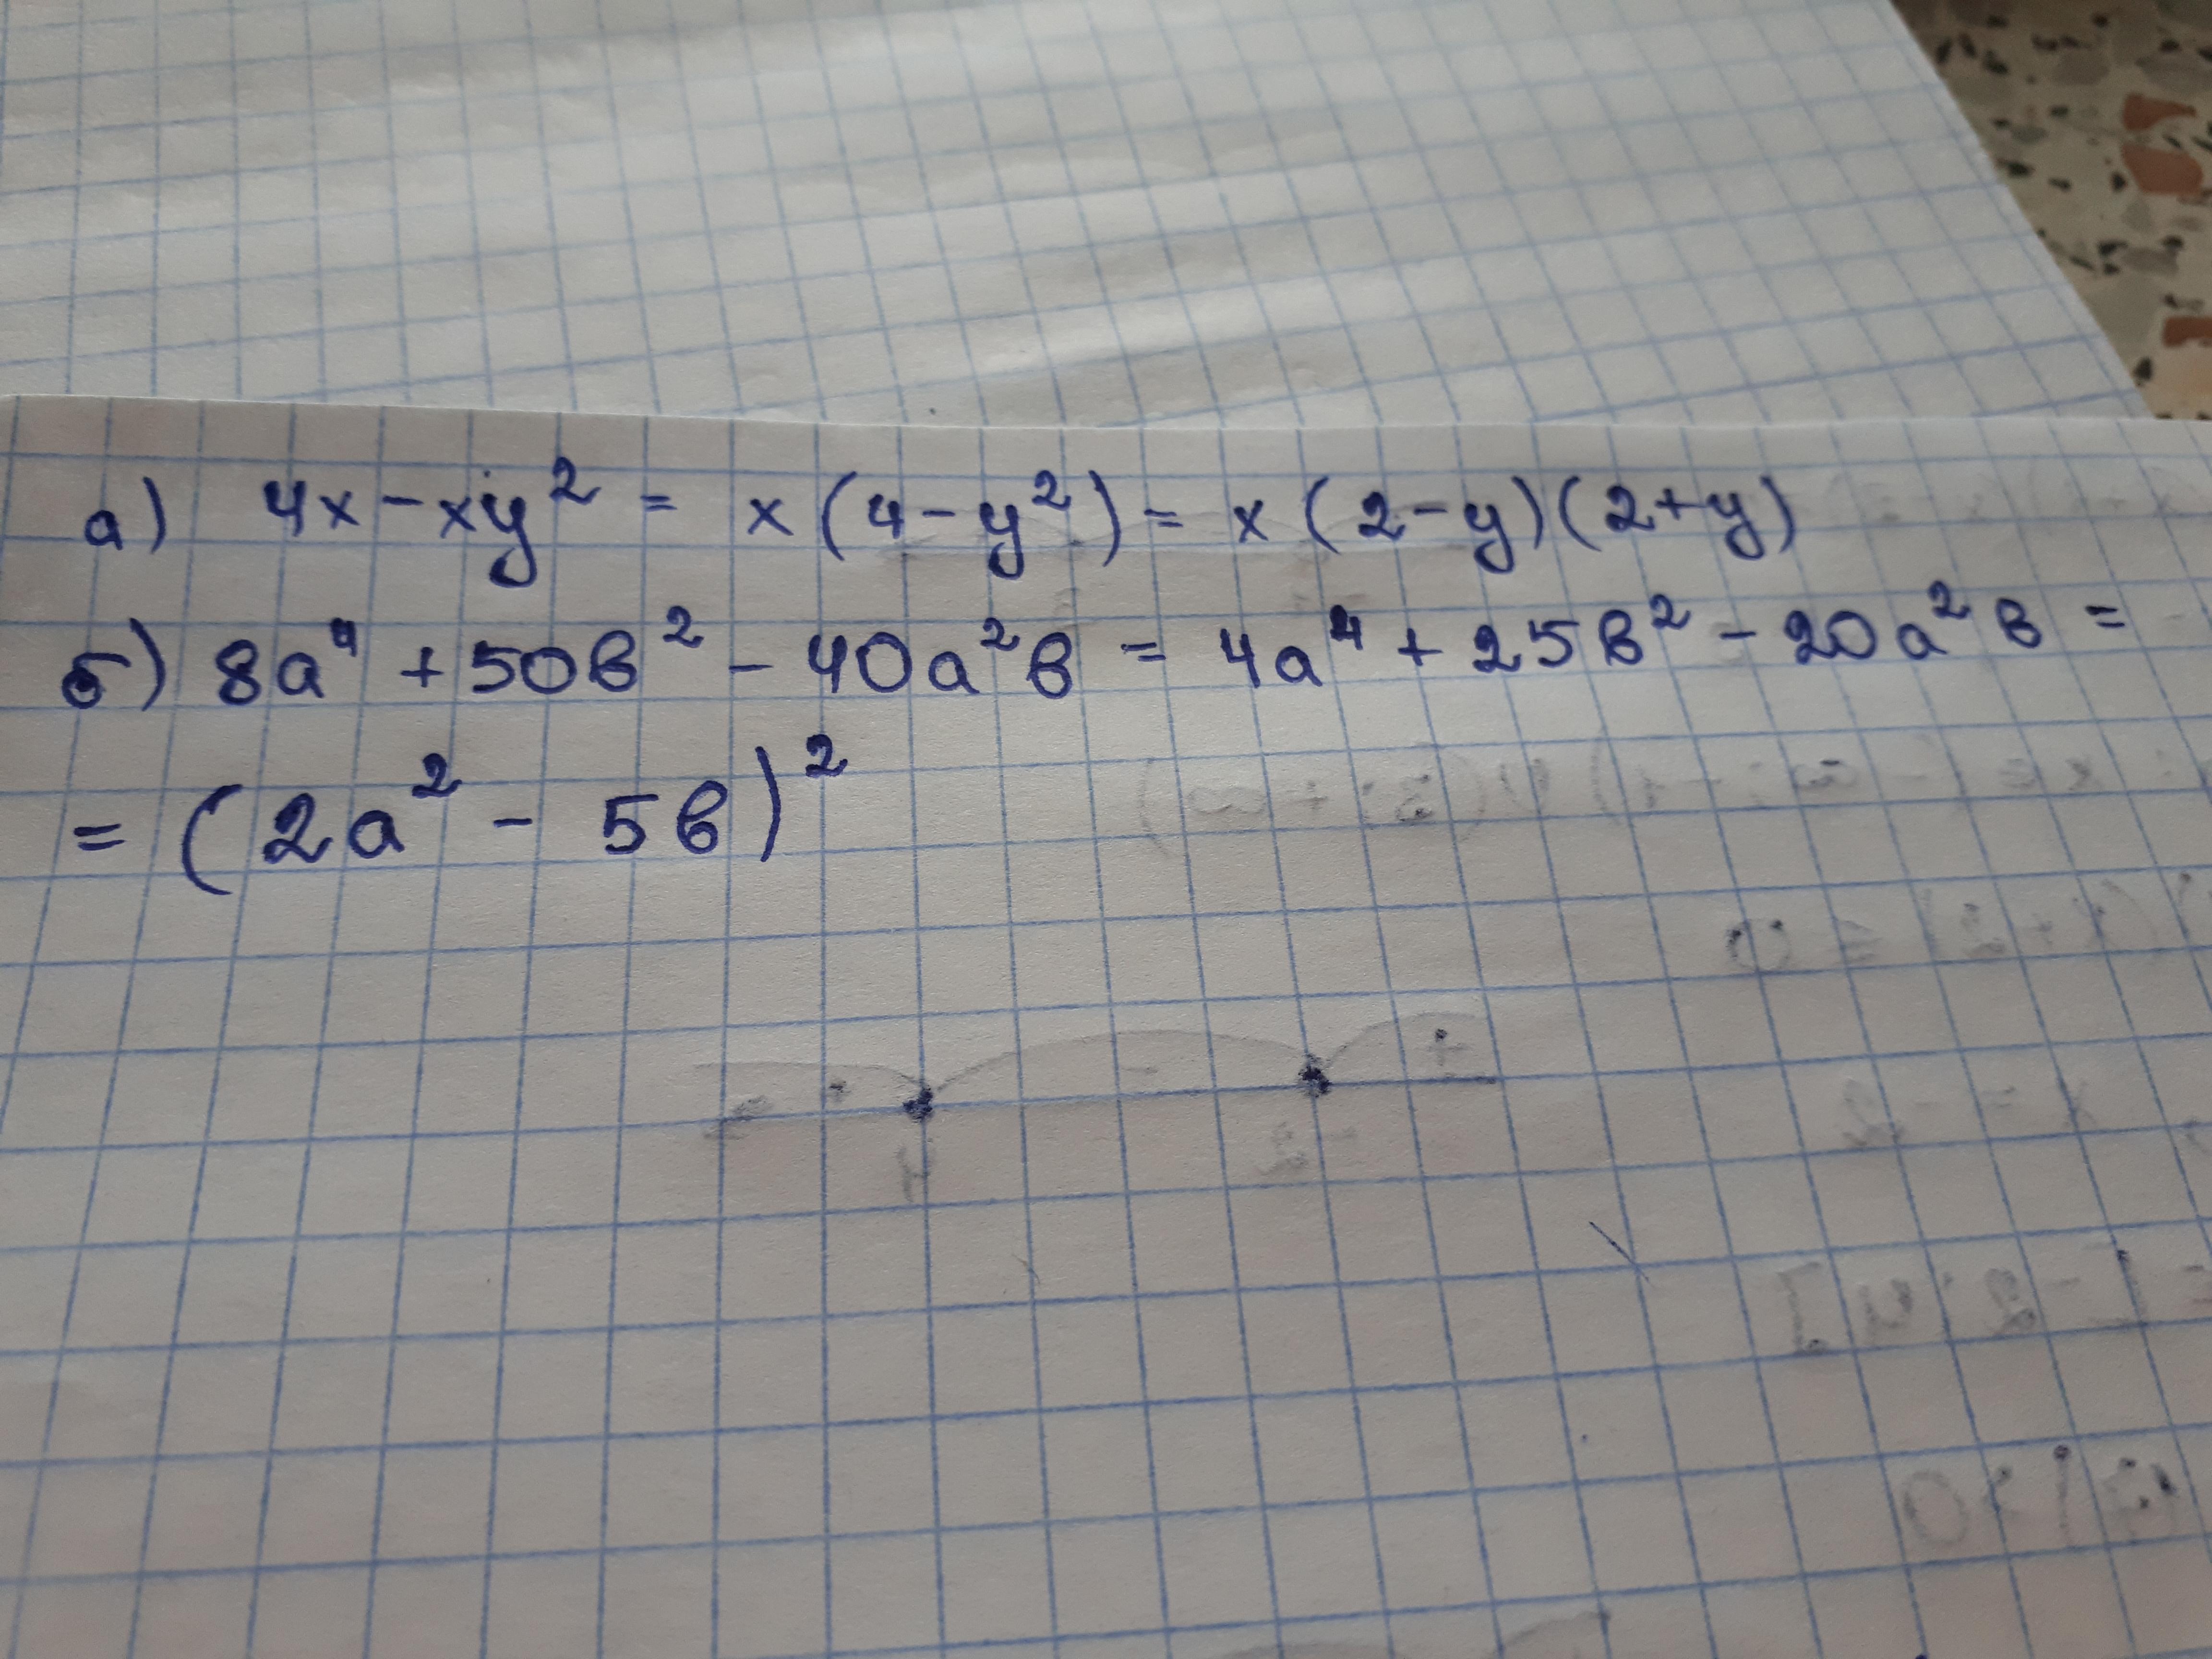 а) 4x - xy² = x(4 - y²) = x(2 - y)(2 + y)
б) 8a⁴ + 50в² - 40a²в = 4a⁴ + 25в² - 20a²в =
= (2a² - 5в)²